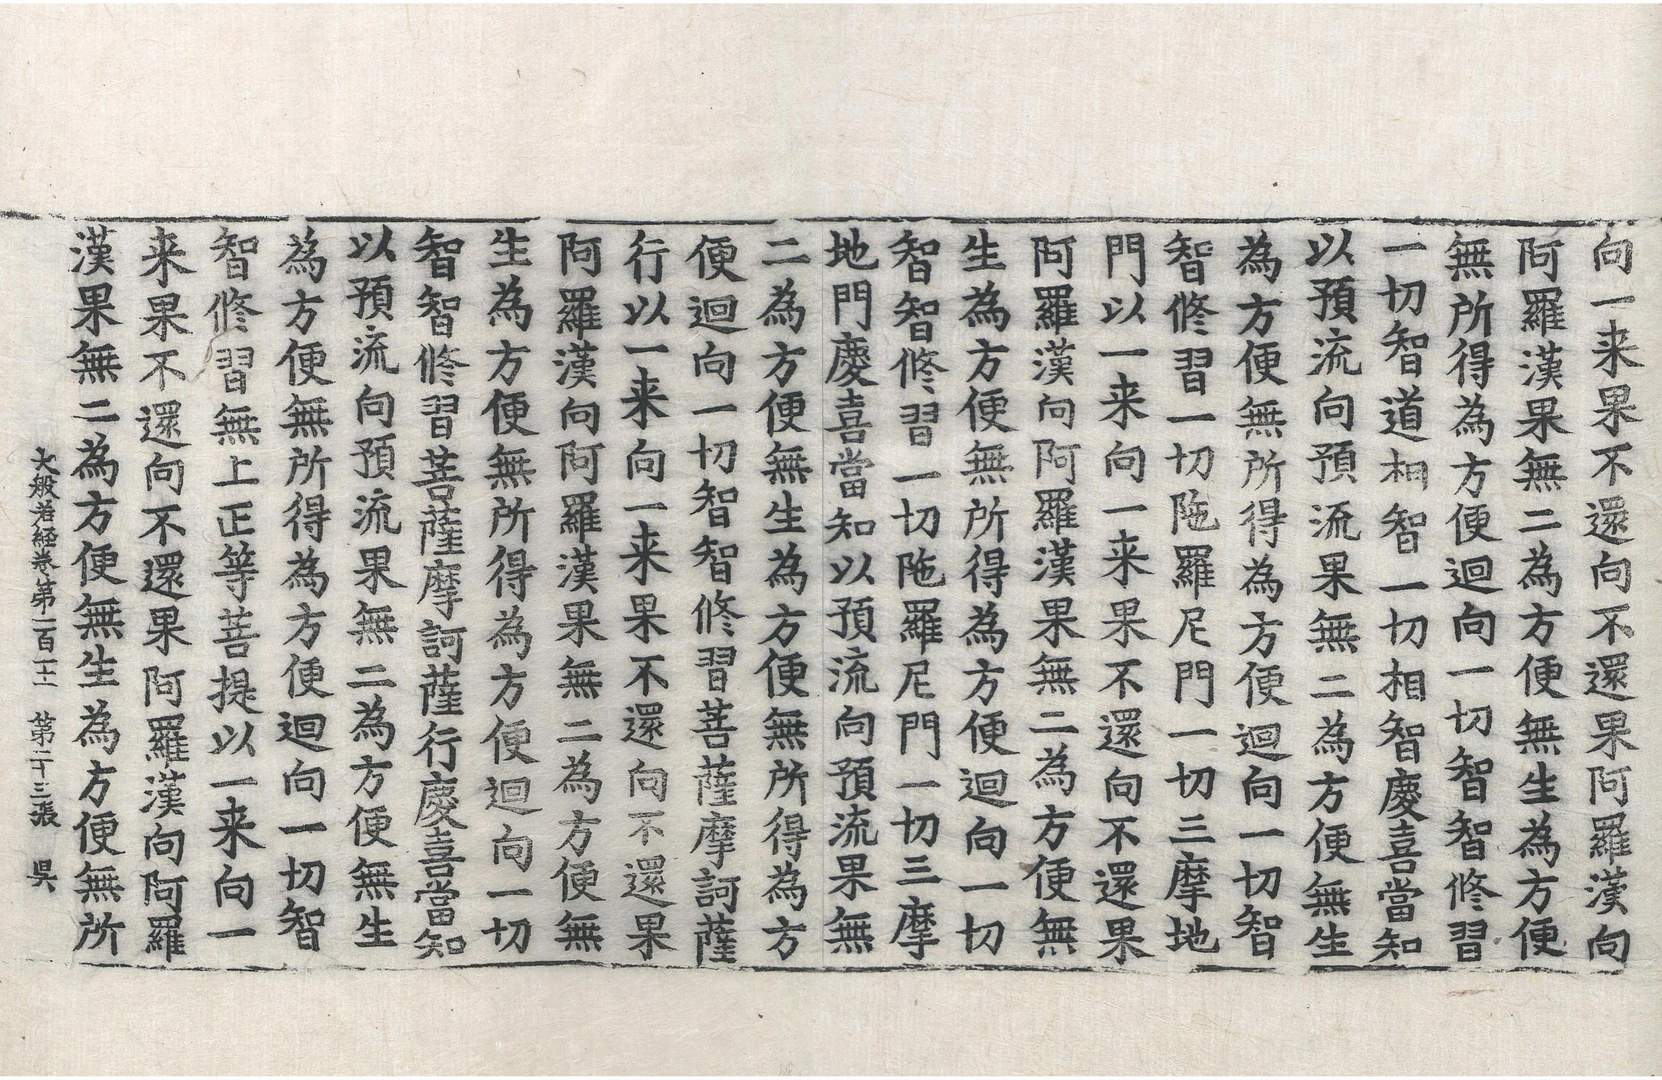 向一来果不還向不還果阿羅漢向
阿羅漢果無二為方便無生為方便
無所得為方便迴向一切智智修習
一切智道相智一切相智慶喜當知
以預流向預流果無二為方便無生
為方便無所得為方便迴向一切智
智修習一切陁羅尼門一切三摩地
門以一来向一来果不還向不還果
阿羅漢向阿羅漢果無二為方便無
生為方便無所得為方便迴向一切
智智修習一切陁羅尼門一切三摩
地門慶喜當知以預流向預流果無
二為方便無生為方便無所得為方
便迴向一切智智修習菩薩摩訶薩
行以一来向一来果不還向不還果
阿羅漢向阿羅漢果無二為方便無
生為方便無所得為方便迴向一切
智智修習菩薩摩訶薩行慶喜當知
以預流向預流果無二為方便無生
為方便無所得為方便迴向一切智
智修習無上正等菩提以一来向一
来果不還向不還果阿羅漢向阿羅
漢果無二為方便無生為方便無所
大般若経卷第一百二十一 第二十三張 吳